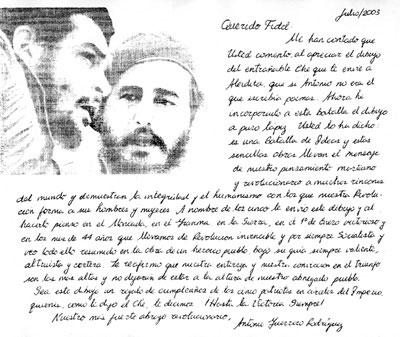 Julio/2003
Querido Fidel
Me han contado que
Usted comentó, al apreciar el dibujo
del entrañable Che que te envié a
Aleidita, que si Antonio no era el
que escribía poemas. Ahora he
incorporado a esta batalla el dibujo
a puro lapiz. Usted lo ha dicho:
es una Batalla de Ideas y estas
sencillas obras llevan el mensaje
de nuestro pensamiento martiano
y revolucionario a muchos rincones
del mundo y demuestran la integridad y el humanismo con los que nuestra Revolu-
ción forma a sus hombres y mujeres. A nombre de los cinco le envío este dibujo y al
hacerlo pienso en el Moncada, en el Granma, en la Sierra, en el 1º de Enero victorioso y
en los más de 44 años que llevamos de Revolución invencible y por siempre Socialista y
veo todo ello resumido en la obra de un heroico pueblo, bajo su guía siempre valiente,
altruista y certera. Le reafirmo que nuestra entrega y nuestra convicción en el triunfo
son las más altas y no dejarán de estar a la altura de nuestro abnegado pueblo.
Sea este dibujo un regalo de cumpleaños de los cinco patriotas en cárceles del Imperio
quienes, como te dijo el Che, te decimos: ¡Hasta la Victoria Siempre!
Nuestro más fuerte abrazo revolucionario,
Antonio Guerrero Rodríguez